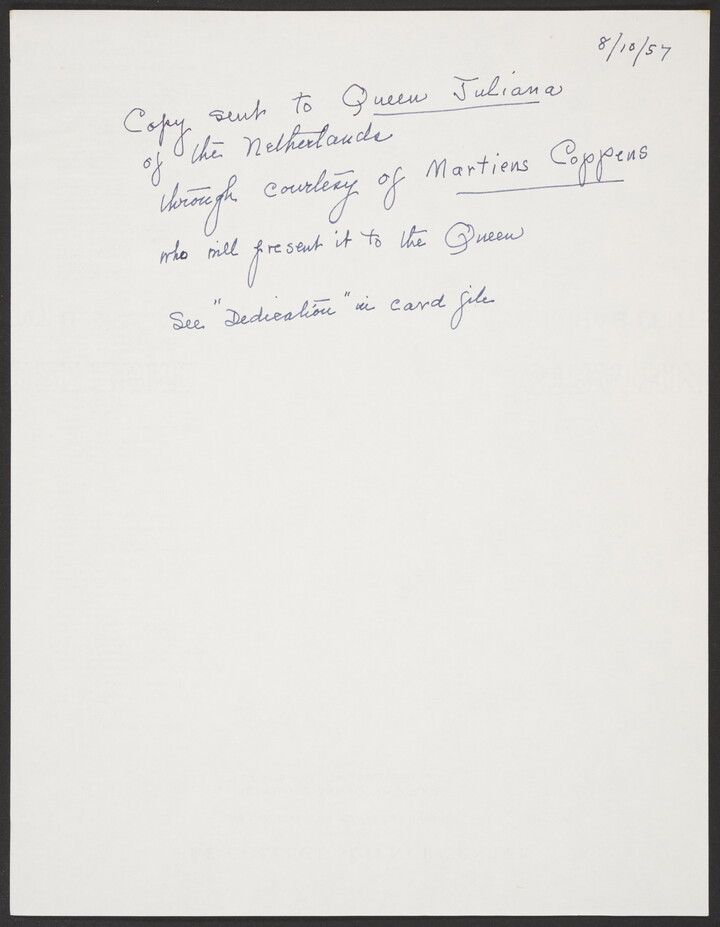 8/10/57
Copy sent to Queen Juliana
of the Netherlands
through courtesy of Martiens Coppens
who will present it to the Queen
See "Dedication" in card file